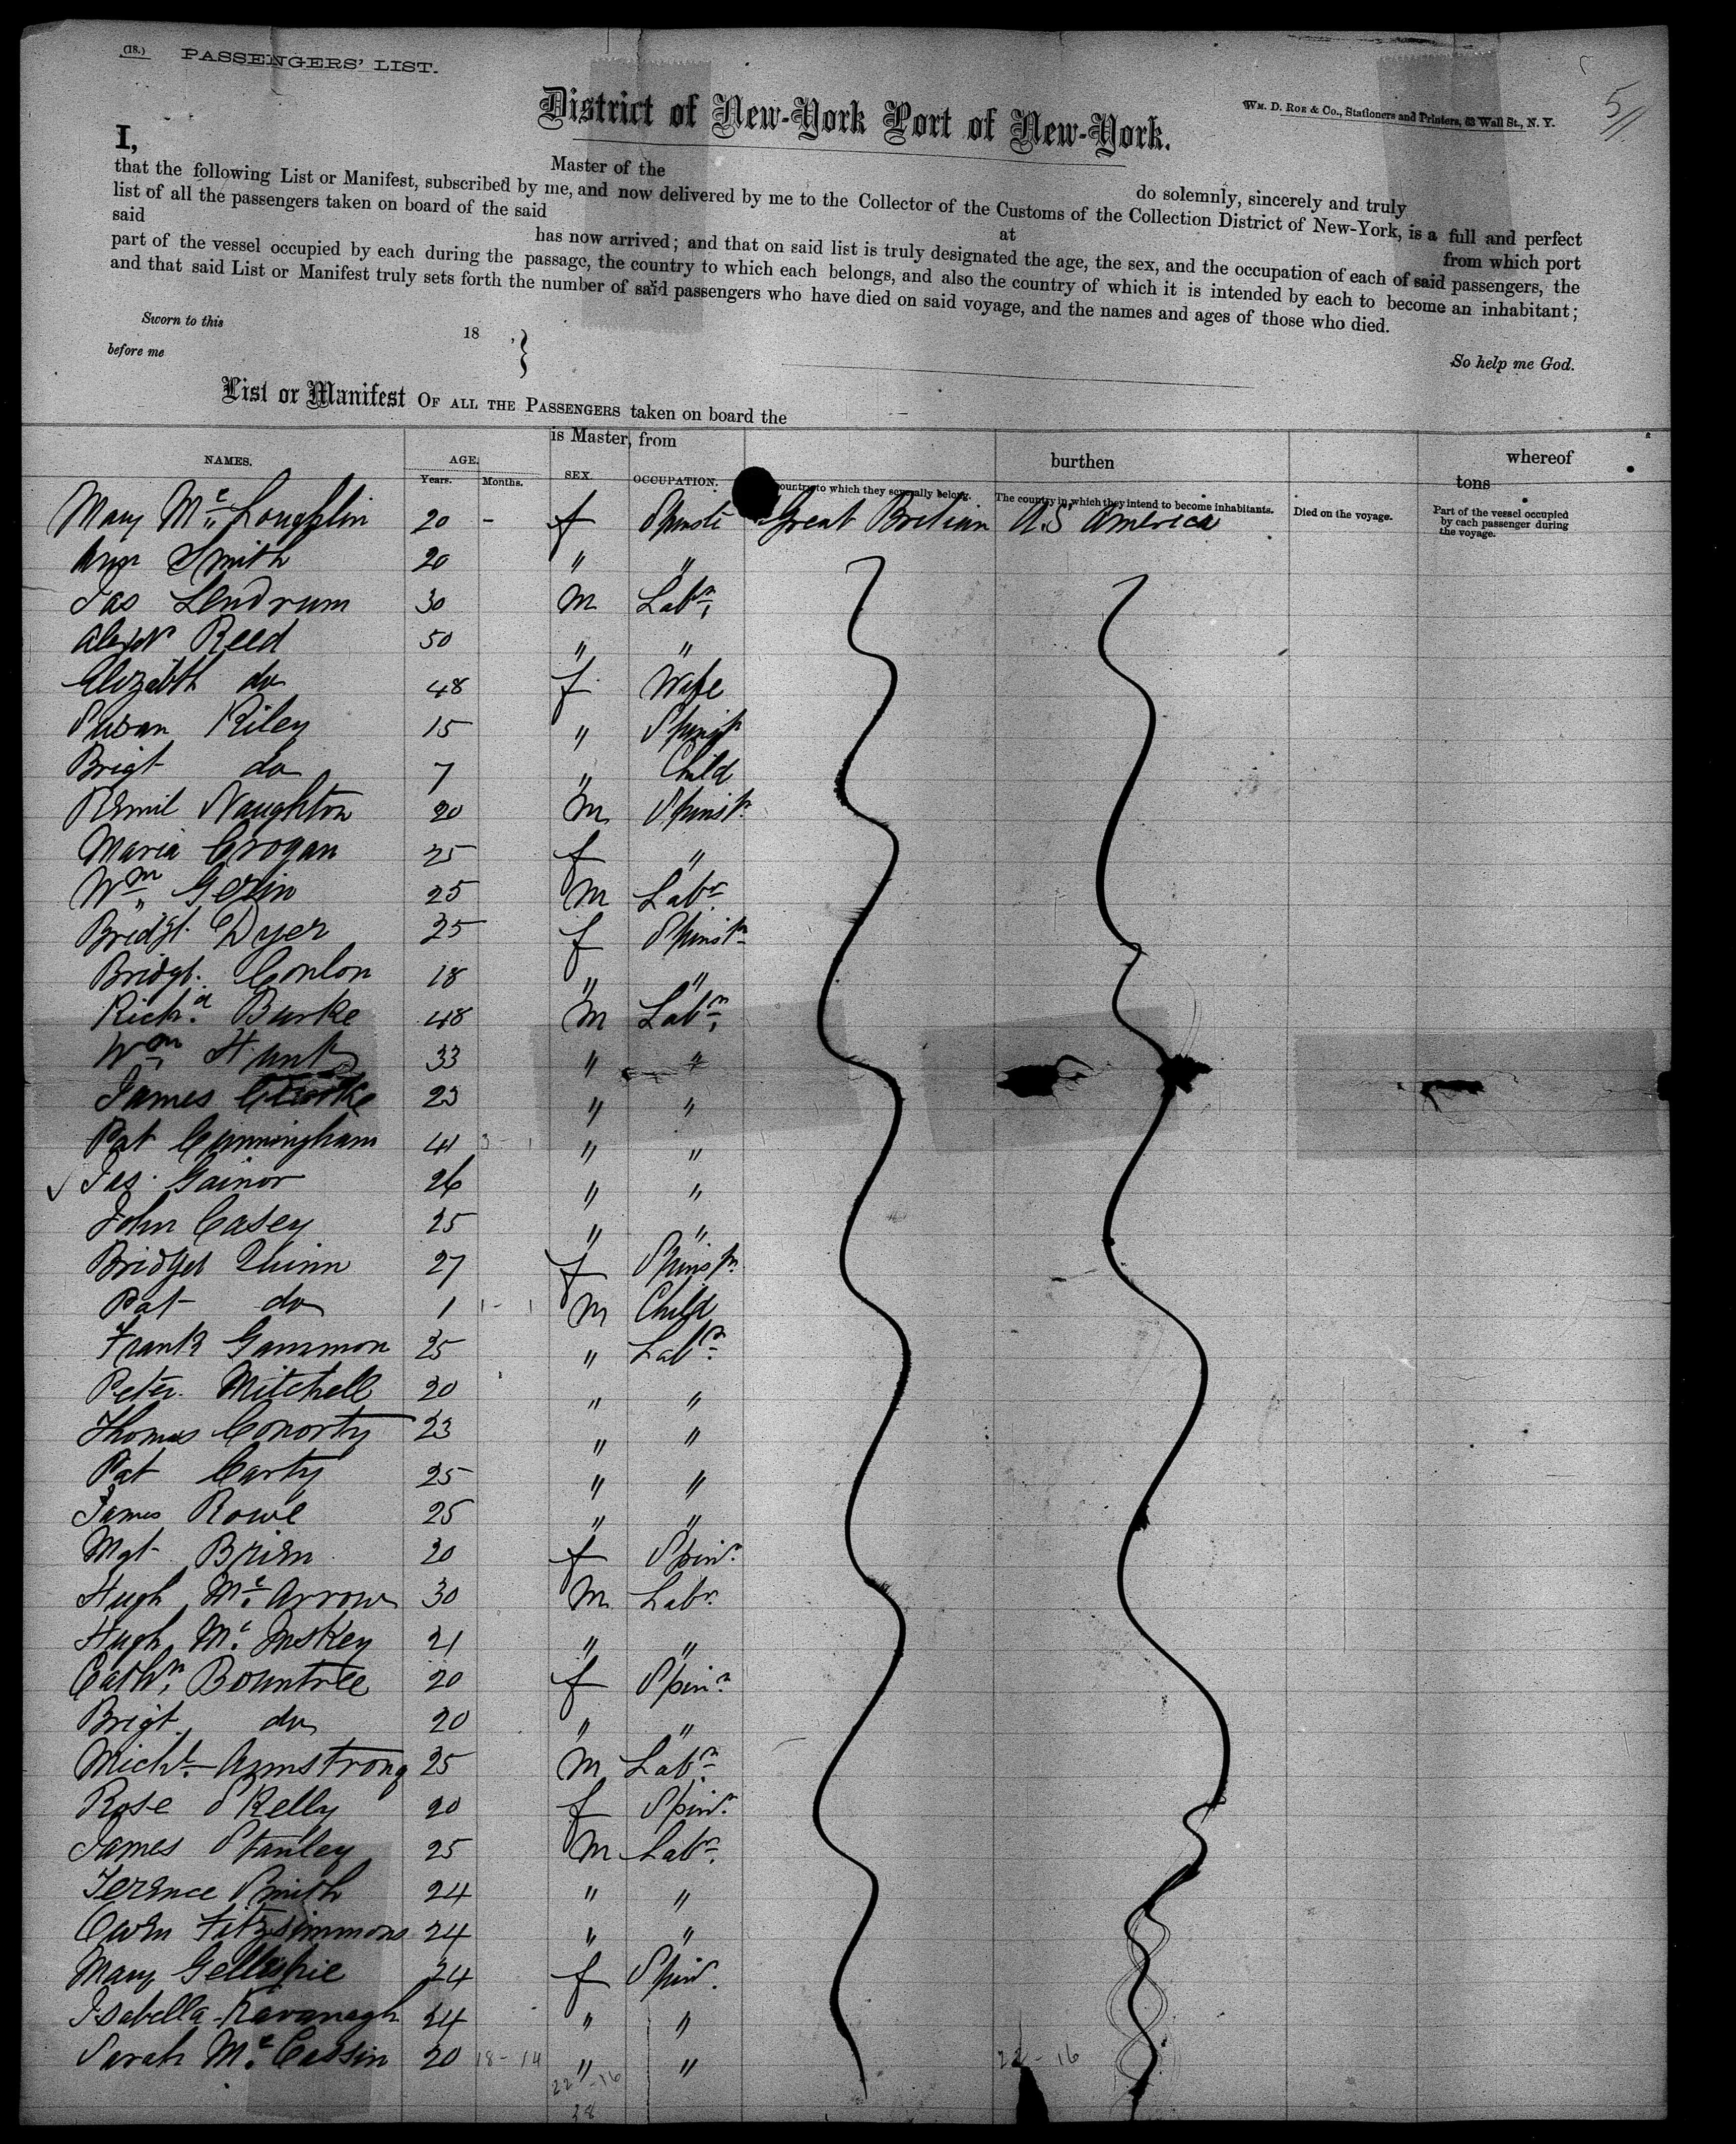 (18.) PASSENGERS' LIST.
5
District of New-York Port of New-York.
WM. D. ROE & CO., Stationers and Printers, 53 Wall St., N. Y.
I, Master of the do solemnly, sincerely and truly
that the following List or Manifest, subscribed by me, and now delivered by me to the Collector of the Customs of the Collection District of New-York, is a full and perfect
list of all the passengers taken on board of the said at from which port
said has now arrived; and that on said list is truly designated the age, the sex, and the occupation of each of said passengers, the
part of the vessel occupied by each during the passage, the country to which each belongs, and also the country of which it is intended by each to become an inhabitant;
and that said List or Manifest truly sets forth the number of said passengers who have died on said voyage, and the names and ages of those who died.
So help me God.
Sworn to this 18 ,
before me
List or Manifest OF ALL THE PASSENGERS taken on board the
is Master, from burthen whereof
tons
NAMES. AGE. SEX. OCCUPATION. Country to which they severally belong. The country in which they intend to become inhabitants. Died on the voyage. Part of the vessel occupied by each passenger during the voyage.
Years. Months.
Mary Mc Loughlin 20 - f Spinstr Great Britian U.S America
Ann Smith 20 " "
Jas Lendrum 30 m Labr
Alexdr Reed 50 " "
Elizabth do 48 f Wife
Susan Riley 15 " Spinstr
Brigt do 7 " Child
Naughton 20 m Spinstr
Maria Crogan 25 f "
Wm Gerin 25 m Labr
Bridgt. Dyer 25 f Spinstr
Bridgt. Conlon 18 " "
Richd Burke 48 m Labr
Wm Hunt 33 " "
James Clarke 23 " "
Pat Cunningham 41 " "
Jas. Gainor 26 " "
John Casey 25 " "
Bridget Quinn 27 f Spinstr
Pat do 1 m Child
Frank Gammon 25 " Labr
Peter Mitchell 20 " "
Thomas Conorty 23 " "
Pat Carty 25 " "
James Rowe 25 " "
Mgt Brien 20 f Spinr
Hugh Mc Arrow 30 m Labr
Hugh Mc Inskey 21 " "
Cathn Bountree 20 f Spinr
Brigt do 20 " "
Michl Armstrong 25 m Labr
Rose S Kelly 20 f Spinr
James Stanley 25 m Labr
Terence Smith 24 " "
Owen Fitzsimmons 24 " "
Mary Gellespie 24 f Spinr
Isabella Kavanagh 24 " "
Sarah Mc Cassin 20 18 - 14 " " 22 - 16
22 - 16
38